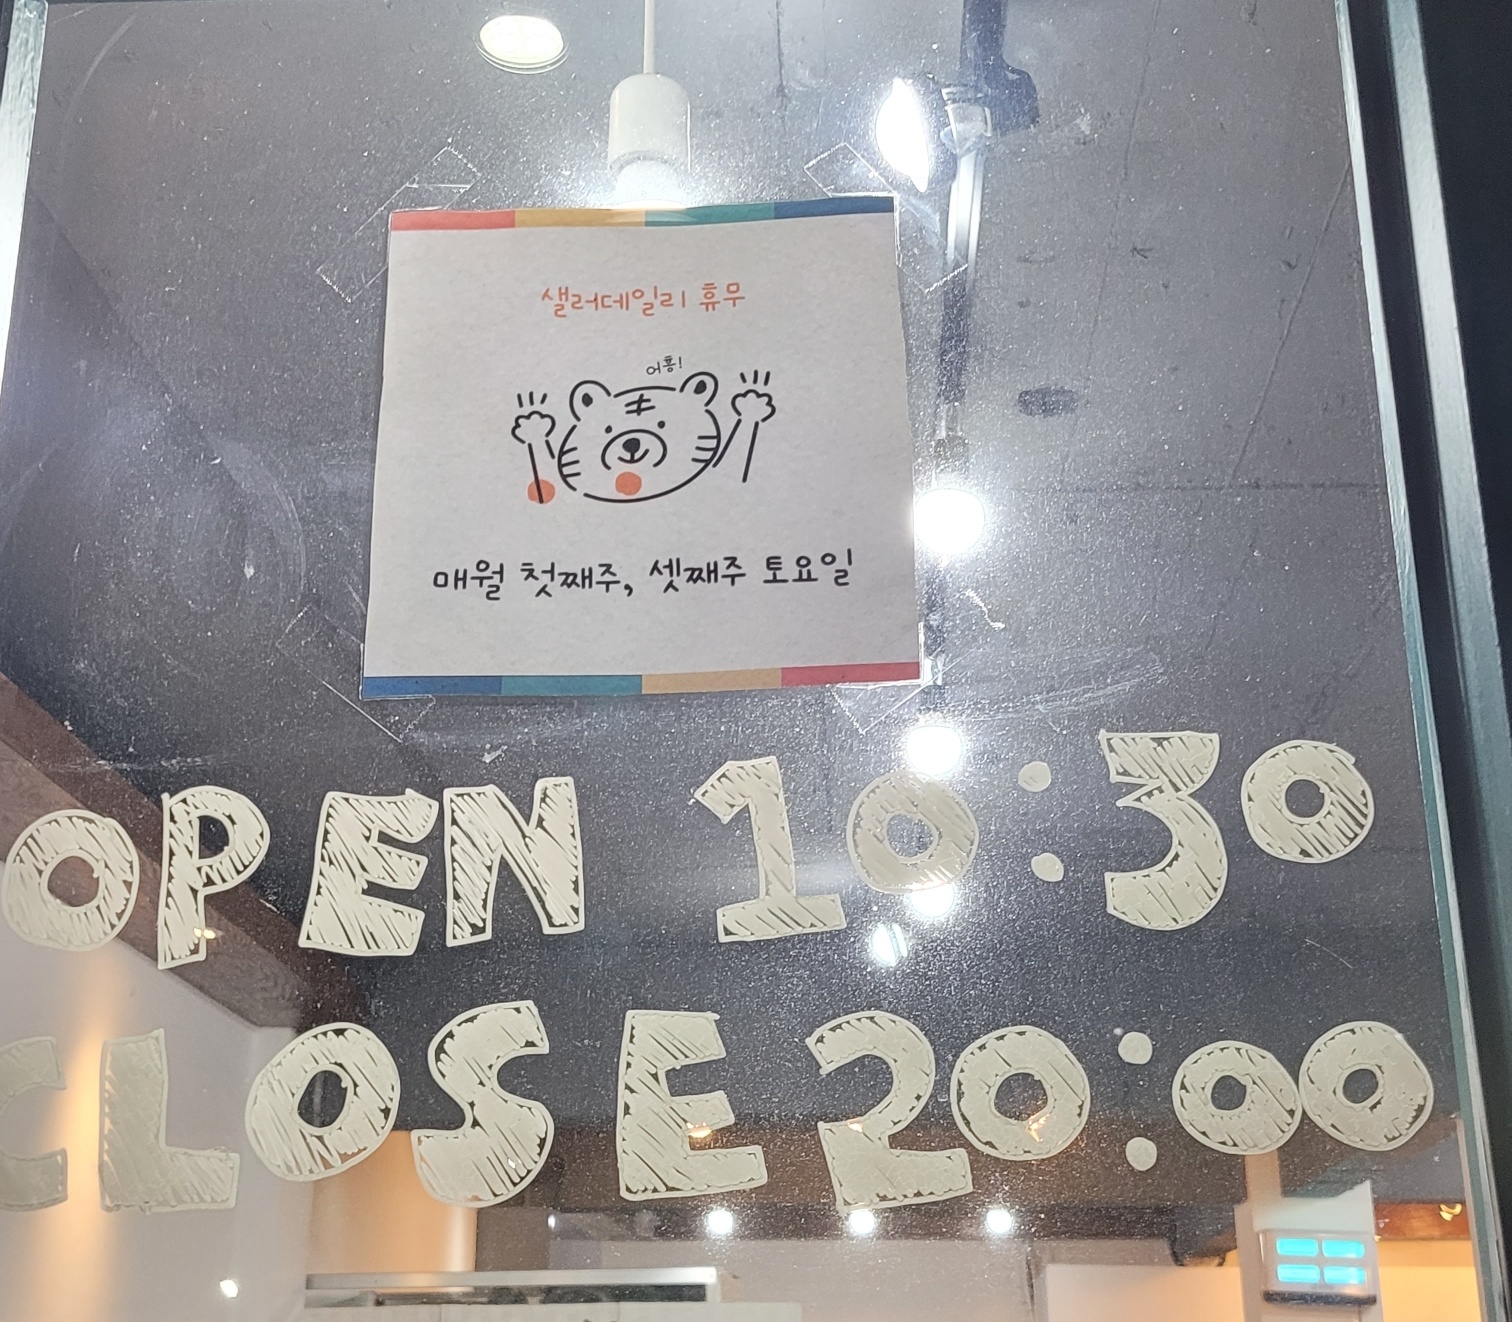 샐러데일리 휴무
어흥!
매월 첫째주, 셋째주 토요일
OPEN 10:30
CLOSE 20:00